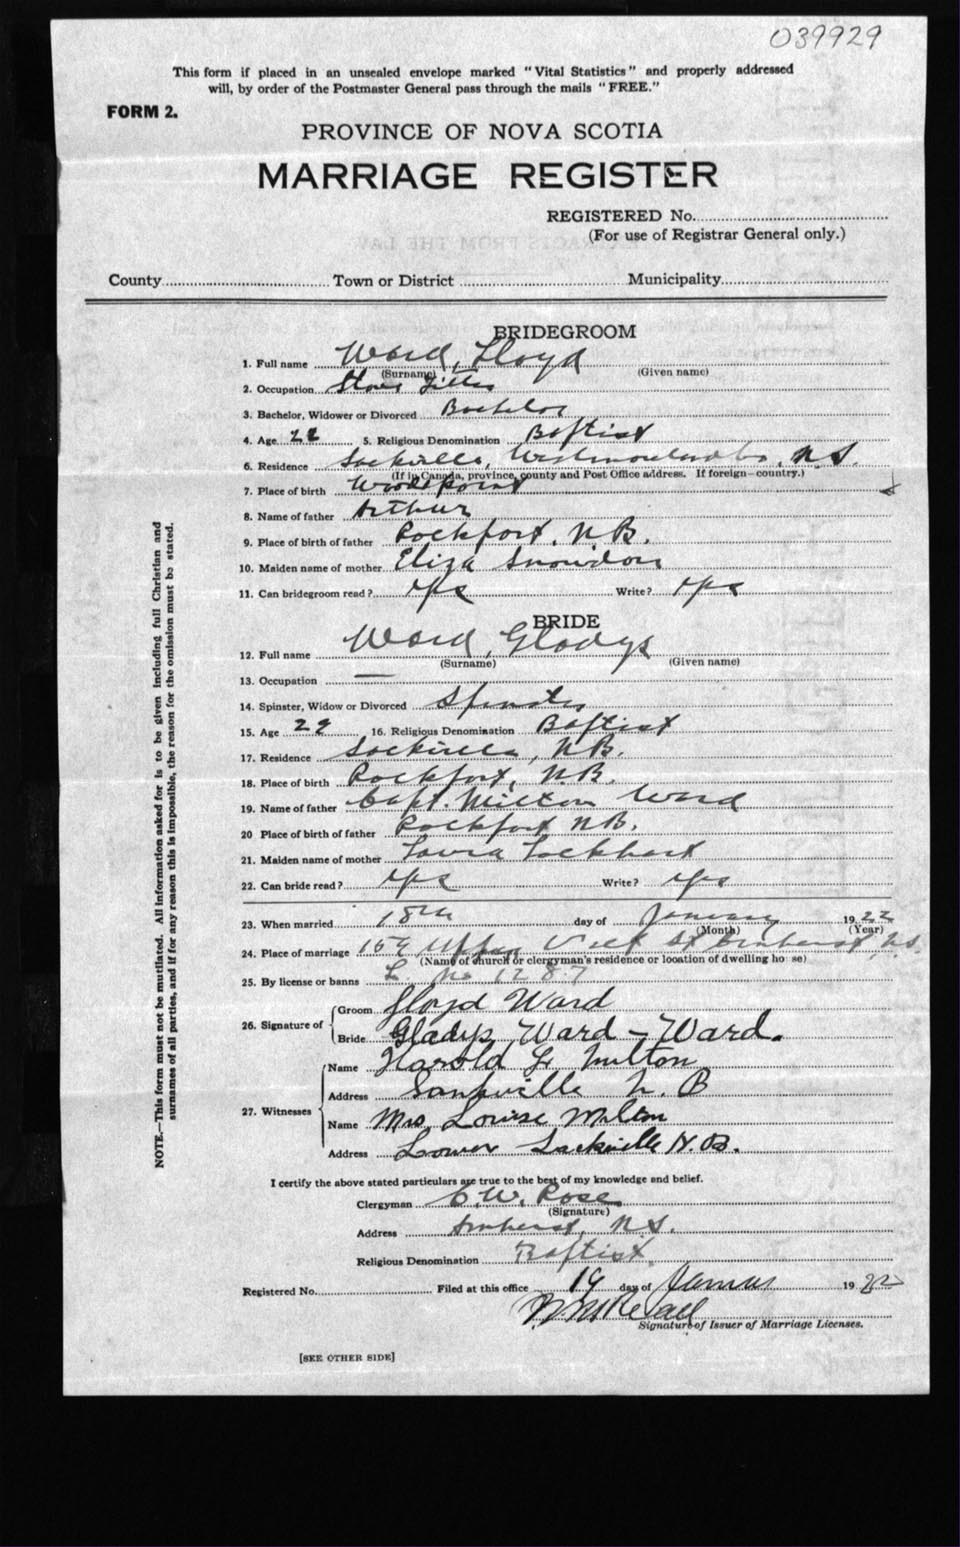 039929
This form if placed in an unsealed envelope marked "Vital Statistics" and properly addressed
will, by order of the Postmaster General pass through the mails "FREE."
FORM 2.
PROVINCE OF NOVA SCOTIA
MARRIAGE REGISTER
REGISTERED No.
(For use of Registrar General only.)
County Town or District Municipality
BRIDEGROOM
1. Full name Ward, Lloyd
(Surname) (Given name)
2. Occupation Stove Fitter
3. Bachelor, Widower or Divorced Bachelor
4. Age 22 5. Religious Denomination Baptist
6. Residence Sackville, Westmoreland Co., N.S.
(If in Canada, province, county and Post Office address. If foreign—country.)
7. Place of birth Wood Point
8. Name of father Arthur
9. Place of birth of father Rockfort, N.B.
10. Maiden name of mother Eliza Snowdon
11. Can bridegroom read? yes Write? yes
BRIDE
12. Full name Ward, Gladys
(Surname) (Given name)
13. Occupation —
14. Spinster, Widow or Divorced Spinster
15. Age 29 16. Religious Denomination Baptist
17. Residence Sackville, N.B.
18. Place of birth Rockfort, N.B.
19. Name of father Capt. Milton Ward
20 Place of birth of father Rockfort N.B.
21. Maiden name of mother Lockhart
22. Can bride read? yes Write? yes
23. When married 18th day of January 1922
(Month) (Year)
24. Place of marriage Upper St Amherst, N.S.
(Name of church or clergyman's residence or location of dwelling house)
25. By license or banns L. No 1287
26. Signature of Groom Lloyd Ward
Bride Gladys Ward – Ward.
27. Witnesses Name Harold Milton
Address Sackville N. B
Name Mrs. Louise Milton
Address Lower Sackville N.B.
I certify the above stated particulars are true to the best of my knowledge and belief.
Clergyman C. W. Rose
(Signature)
Address Amherst, N.S.
Religious Denomination Baptist
Registered No. Filed at this office 19 day of January 1922
Signature of Issuer of Marriage Licenses.
[SEE OTHER SIDE]
NOTE.—This form must not be mutilated. All information asked for is to be given including full Christian and
surnames of all parties, and if for any reason this is impossible, the reason for the omission must be stated.